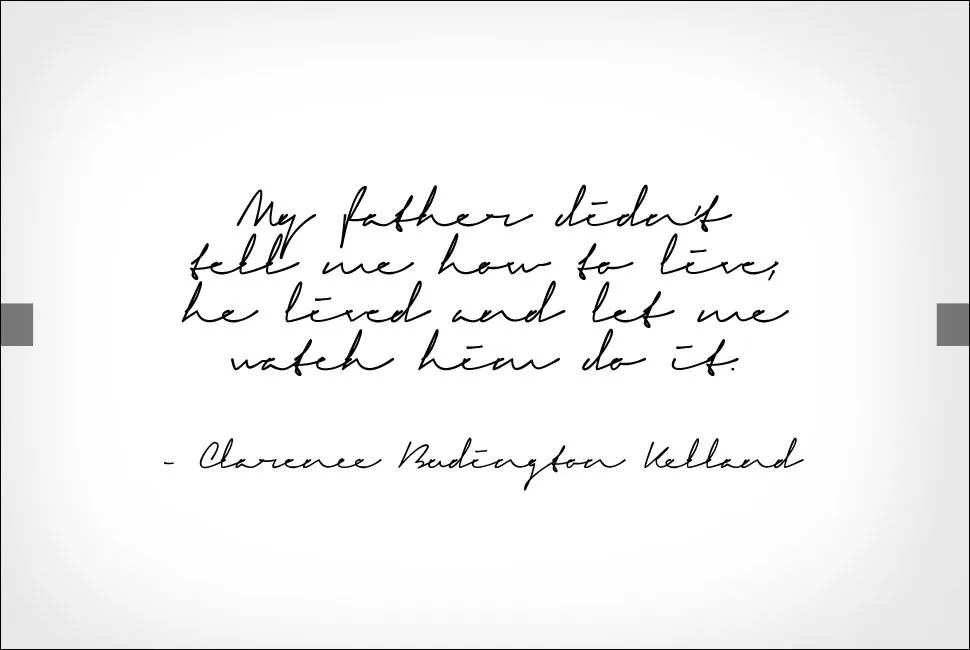 My father didn't
tell me how to live;
he lived and let me
watch him do it.
- Clarence Budington Kelland